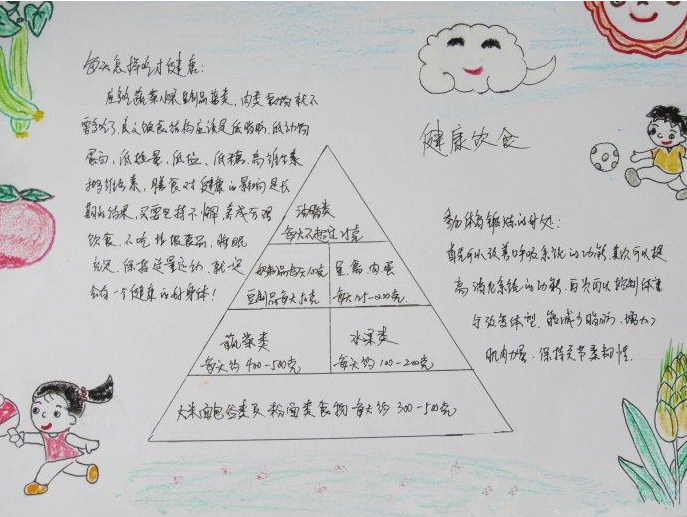 每天怎样吃才健康：
应多吃蔬菜水果豆制品菌类，肉类食物就不
要多吃了。饮食结构应该是低脂肪，低动物
蛋白，低热量，低盐，低糖，高维生素
膳食对健康的影响是长
期的结果，需要坚持不懈，养成合理
饮食，不吃垃圾食品，睡眠
充足，保持适量运动，就一定
会有一个健康的好身体！
健康饮食
油脂类
每天不超过
奶制品
豆制品每天50克
鱼禽肉蛋
每天125-200克
蔬菜类
每天约400-500克
水果类
每天约100-200克
大米面包谷类及粉面类食物每天约300-500克
参加体育锻炼的好处：
首先可以改善呼吸系统的功能，其次可以提
高消化系统的功能，再次可以控制体重
与改善体型，能减少脂肪，增大
肌肉力量，保持关节柔韧性.